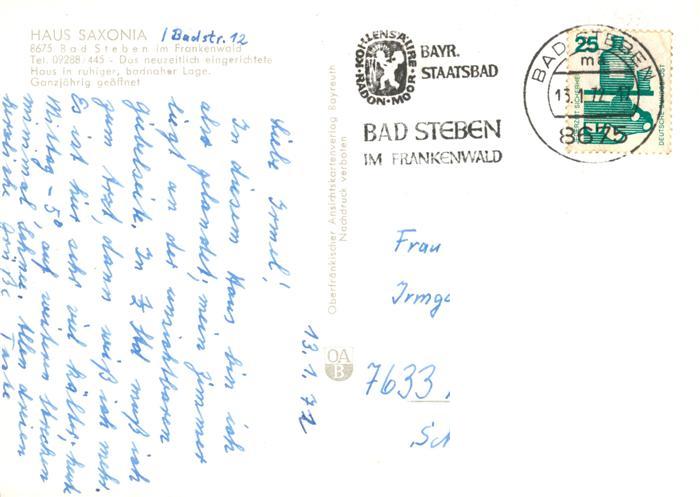 HAUS SAXONIA / Badstr. 12
8675 Bad Steben im Frankenwald
Tel. 09288/445 - Das neuzeitlich eingerichtete
Haus in ruhiger, badnaher Lage.
Ganzjährig geöffnet
13.1.72
Liebe Irmel!
In diesem Haus bin ich
also gelandet; mein Zimmer
liegt an der unsichtbaren
Giebelseite. In ½ Std muß ich
zum Arzt, dann weiß ich mehr.
Es ist hier sehr viel kälter; heute
Mittag -5° auf weiteren Strecken
minimal Schnee. Allen dreien
herzliche Grüße Tante
Oberfränkischer Ansichtskartenverlag Bayreuth
Nachdruck verboten
OA
B
KOHLENSÄURE
RADON · MOOR
BAYR.
STAATSBAD
BAD STEBEN
IM FRANKENWALD
BAD STEBEN
ma
13. 72
8675
25
JEDERZEIT SICHERHEIT
DEUTSCHE BUNDESPOST
Frau
Irmga
7633
Sch